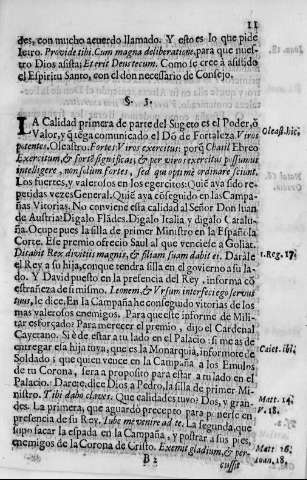 11
des, con mucho acuerdo llamado. Y esto es lo que pide
Ietro. Provide tibi. Cum magna deliberatione, para que nues-
tro Dios asista: Et erit Deus tecum. Como se creè à asistido
el Espiritu Santo, con el don necessario de Consejo.
§. 3.
LA Calidad primera de parte del Sugeto es el Poder, ò
Valor, y q̃ uega comunicado el Dō de Fortaleza. Viros
potentes. Oleastro. Fortes: Viros exercitus: porq̃ Chail Ebreo
Exercitum, & fortē significat; & per viros exercitus possumus
intelligere, non solum fortes, sed qui optimè ordinare sciunt.
Los fuertes, y valerosos en los egercitos: Quiē aya sido re-
petidas vezes General. Quiē aya conseguido en las Campa-
ñas Vitorias. No conviene esta calidad al Señor Don Iuan
de Austria: Digalo Flādes. Digalo Italia, y digalo Cataluña.
Ocupe pues la silla de primer Ministro en la España la
Corte. Ese premio ofrecio Saul al que venciese a Goliat.
Ditabit Rex divitiis magnis, & filiam suam dabit ei. Darále
el Rey a su hija, con que tendra silla en el govierno a su la-
do. Y David puesto en la presencia del Rey, informa cō
estrañeza de si mismo. Leonem, & Ursum interfeci ego servus
tuus, le dice. En la Campaña he conseguido vitorias de los
mas valerosos enemigos. Para que este informe de Mili-
tar esforçado? Para merecer el premio, dijo el Cardenal
Cayetano. Si è de estar a tu lado en el Palacio: si me as de
entregar ela hija tuya, que es la Monarquia, informote de
Soldado; i que quien vence en la Campaña a los Emulos
de tu Corona, serà a proposito para estar a tu lado en el
Palacio. Darete, dice Dios a Pedro, la silla de primer Mi-
nistro. Tibi dabo claves. Que calidades tuvo? Dos, y gran-
des. La primera, que aguardò precepto para ponerse en
presencia de su Rey, Iube me venire ad te. La segunda, que
supo sacar la espada en la Campaña, y postrar a sus pies,
enemigos de la Corona de Cristo. Exemit gladium, & per-
B 2
cussit
Oleast. hic.
1. Reg. 17.
Caiet. ibi.
Matt. 14.
V. 18.
Matt. 26.
Ioan. 18.